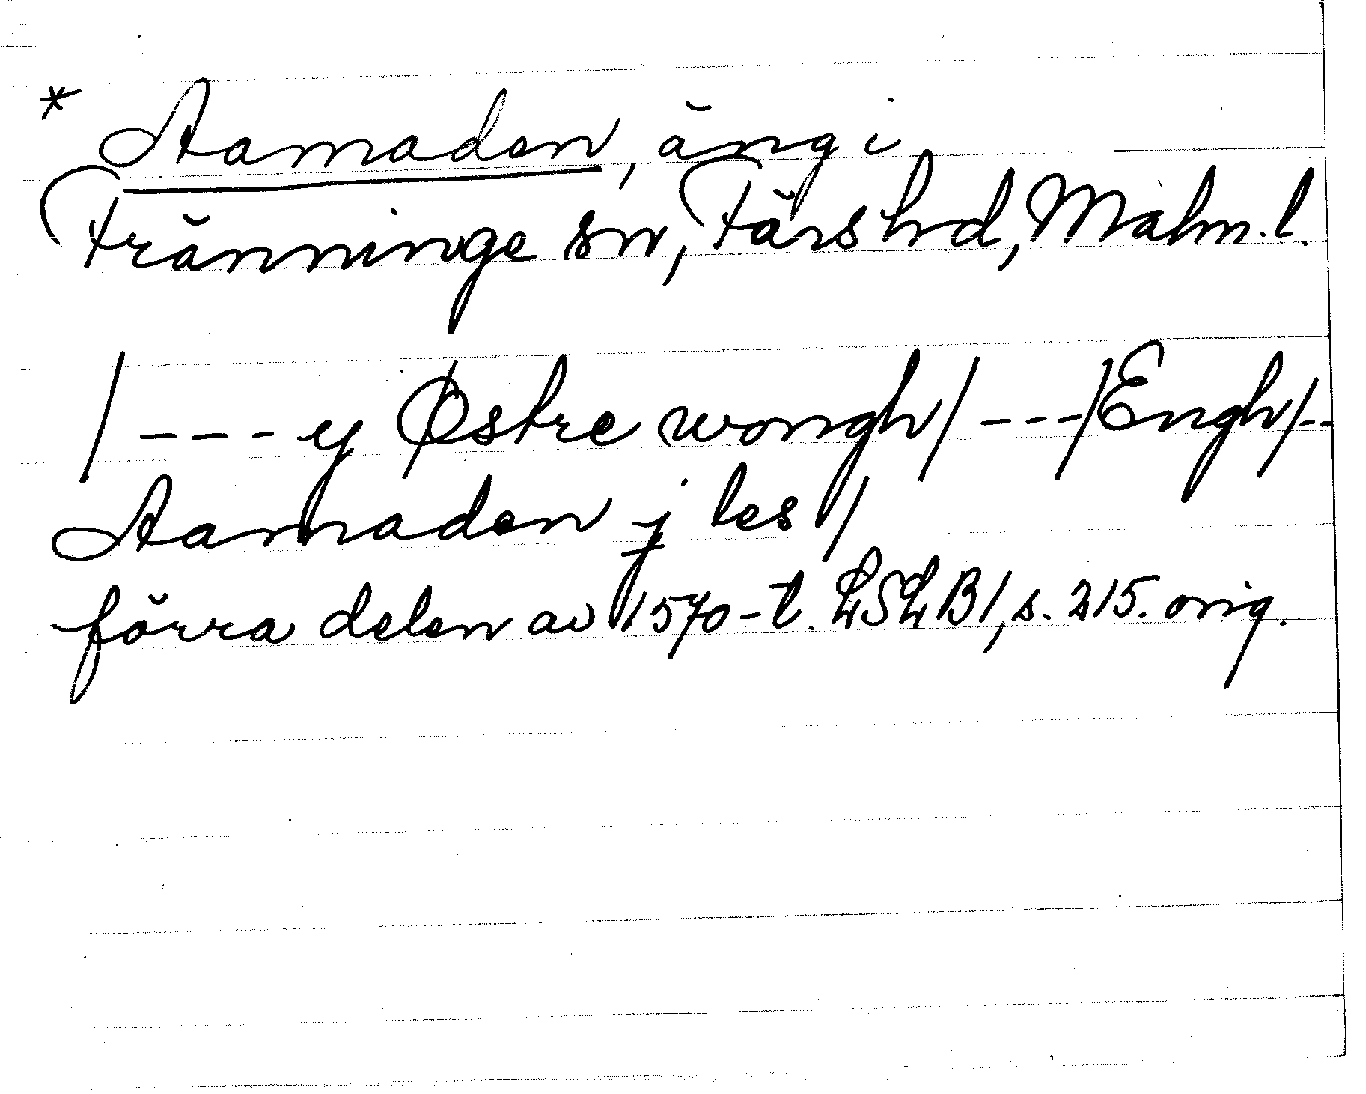 * Aamaden, äng i
Fränninge sn, Färs hd, Malm. l.
/ - - - y Østre wongh / - - - / Engh / - -
Aamaden j les /
förra delen av 1570-t. LSLB 1, s. 215. orig.